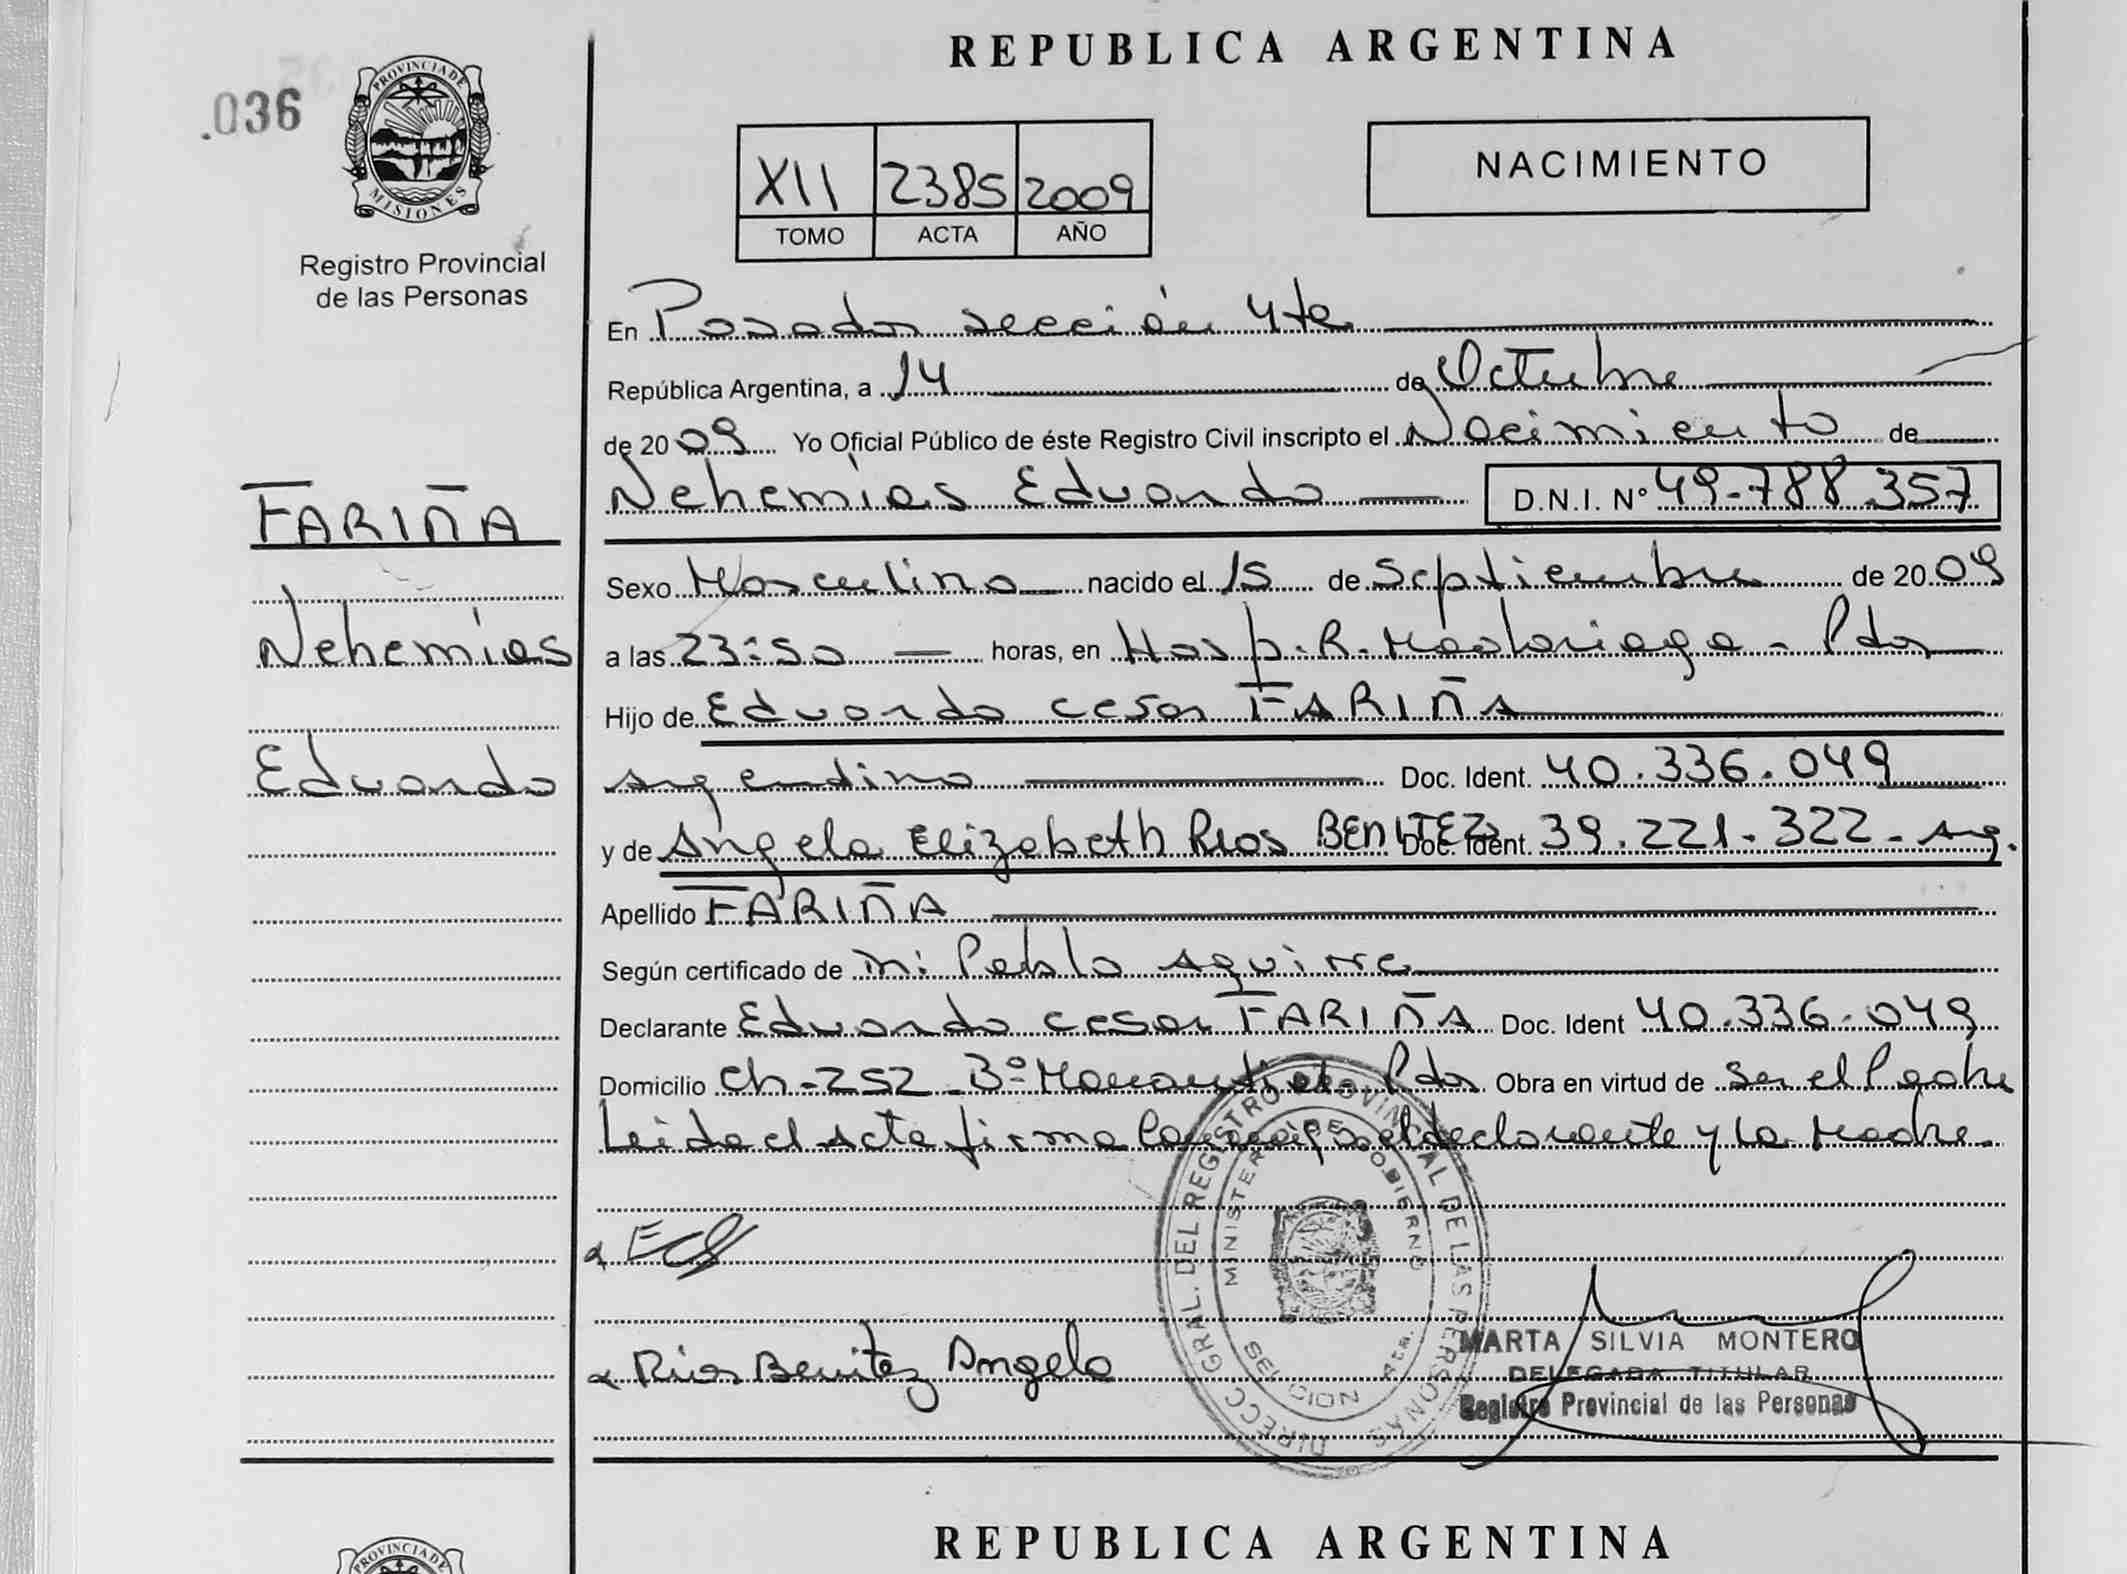 REPUBLICA ARGENTINA
.036
PROVINCIA DE
MISIONES
Registro Provincial
de las Personas
XII 2385 2009
TOMO ACTA AÑO
NACIMIENTO
En Posadas sección 4ta
República Argentina, a 14 de Octubre
de 2009 Yo Oficial Público de éste Registro Civil inscripto el Nacimiento de
Nehemías Eduardo D.N.I. Nº 49.788.357
FARIÑA
Nehemías
Eduardo
Sexo Masculino nacido el 15 de Septiembre de 2009
a las 23:50 horas, en Hosp. R. Madariaga - Pdas
Hijo de Eduardo Cesar FARIÑA
Argentino Doc. Ident. 40.336.049
y de Angela Elizabeth Rios BENITEZ Doc. Ident. 39.221.322 - Arg.
Apellido FARIÑA
Según certificado de Pablo Aguirre
Declarante Eduardo Cesar FARIÑA Doc. Ident 40.336.049
Domicilio Ch-252 Bº Manantial Pdas Obra en virtud de Ser el Padre
Leida el Acta firma Conmigo el declarante y la Madre.
DIRECC GRAL. DEL REGISTRO PROVINCIAL DE LAS PERSONAS
MINISTERIO DE GOBIERNO
SECCION 4ta.
Rios Benitez Angela
MARTA SILVIA MONTERO
DELEGADA TITULAR
Registro Provincial de las Personas
REPUBLICA ARGENTINA
PROVINCIA DE